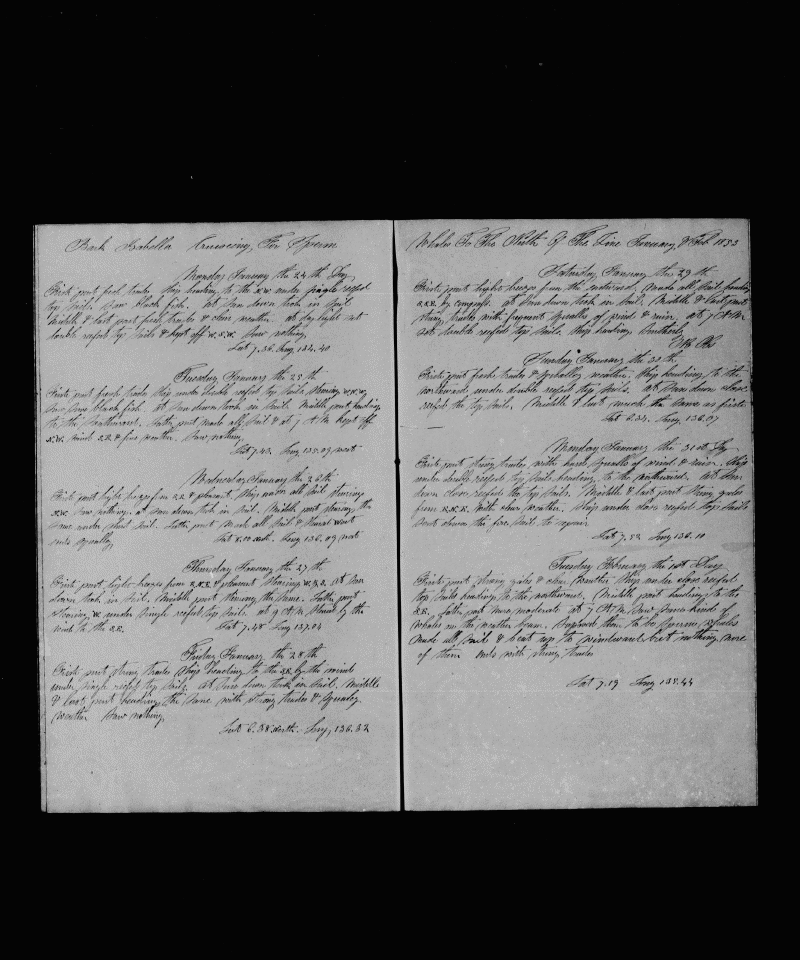 Bark Isabella Cruiseing, For Sperm
Monday January the 24th Day
First part fresh trades Ship heading to the N.W under single reefed
top sails. Saw black fish. At Sun down took in Sail
Middle & last part fresh trades & clear weather. at day light set
double reefed top sails & kept off W.S.W. Saw nothing.
Lat 7.56 Long 134.40
Tuesday January the 25th
First part fresh trades Ship under double reefed top sails steering W.N.W
Saw some black fish. At Sun down took in Sail. Middle part heading
to the Southward. Latter part made all sail & at 7 A M kept off
N.W. wind & fine weather. Saw nothing.
Lat 7.43 Long 135.09 west
Wednesday January the 26th
First part light breezes from & pleasant. Ship under all sail steering
N.W. Saw nothing. at Sun down took in Sail. Middle part steering the
same under short sail. Latter part Made all Sail &
ends squally. Lat 8.10 south. Long 136.09 west
Thursday January the 27th
First part light breezes from & pleasant steering At Sun
down took in Sail. Middle part steering the same. Latter part
steering W. under single reefed top sails. at 9 A M. by the
wind to the Lat 7.48 Long 137.04
Friday January the 28th
First part strong trades Ship heading to the by the wind
under single reefed top sails. At Sun down took in Sail. Middle
& last part heading the same with strong trades & squaley
weather Saw nothing.
Lat 6.58 south. Long, 136.32
Whales To The North Of The Line January, & Feb. 1853
Saturday January the 29th
First part light breezes from the eastward. Made all Sail heading
by compass. at Sun down took in Sail. Middle & last part
strong trades with frequent squalls of wind & rain. at 7 A M
set double reefed top sails. Ship heading Southerly
No Ob
Sunday January the 30th
First part fresh trades & squally weather. Ship heading to the
northward under double reefed top sails. At Sun down close
reefed the top sails. Middle & last much the same as first
Lat 6.34. Long 136.07
Monday January the 31st Day
First part strong trades with hard squalls of wind & rain. Ship
under double reefed top sails heading to the northward. At Sun
down close reefed the top sails. Middle & last part strong gales
from with clear weather. Ship under close reefed top sails
Sent down the fore sail to repair
Lat 7.52 Long 136.10
Tuesday February the 1st Day
First part strong gales & clear weather Ship under close reefed
top sails heading to the northward. Middle part heading to the
latter part more moderate at 7 A M Saw some kind of
whales on the weather beam. Supposed them to be sperm whales
made all sail & beat up to windward but nothing more
of them ends with strong trades
Lat 7.19 Long 135.44